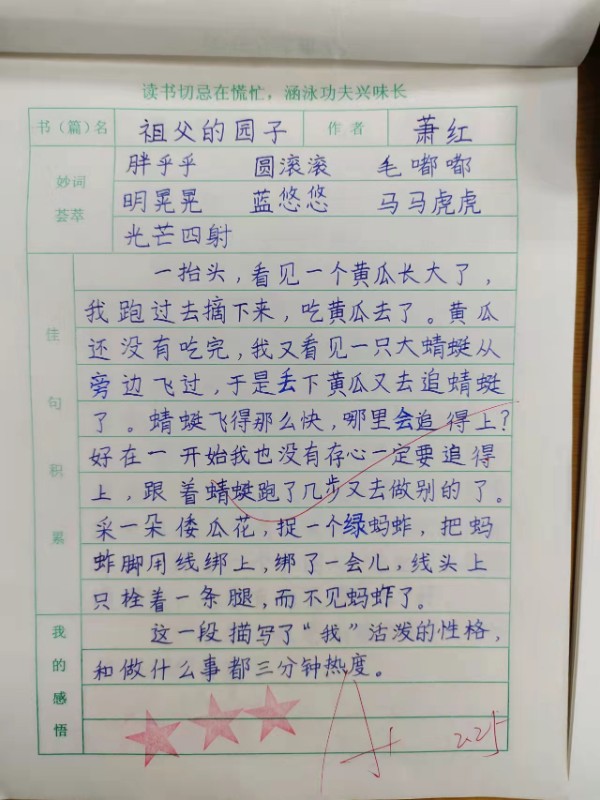 读书切忌在慌忙，涵泳功夫兴味长
书（篇）名 祖父的园子 作者 萧红
妙词荟萃
胖乎乎 圆滚滚 毛嘟嘟
明晃晃 蓝悠悠 马马虎虎
光芒四射
佳句积累
一抬头，看见一个黄瓜长大了，
我跑过去摘下来，吃黄瓜去了。黄瓜
还没有吃完，我又看见一只大蜻蜓从
旁边飞过，于是丢下黄瓜又去追蜻蜓
了。蜻蜓飞得那么快，哪里会追得上？
好在一开始我也没有存心一定要追得
上，跟着蜻蜓跑了几步又去做别的了。
采一朵倭瓜花，捉一个绿蚂蚱，把蚂
蚱脚用线绑上，绑了一会儿，线头上
只栓着一条腿，而不见蚂蚱了。
我的感悟
这一段描写了“我”活泼的性格，
和做什么事都三分钟热度。
A+ 2.25